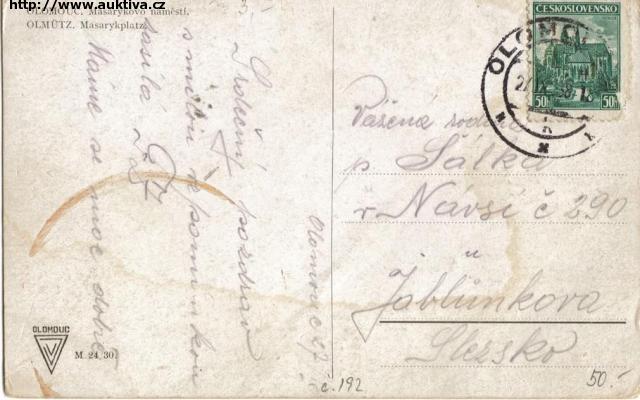 http://www.auktiva.cz
OLOMOUC. Masarykovo náměstí.
OLMÜTZ. Masarykplatz.
Srdečný pozdrav
s milou vzpomínkou
posílá
Máme se moc dobře
Olomouc
OLOMOUC
M. 24, 30.
ČESKOSLOVENSKO
50 50
OLOMOUC
Vážená rodina
p. Sálka
v Návsí č 290
u
Jablůnkova
Slezsko
č. 192
50.-